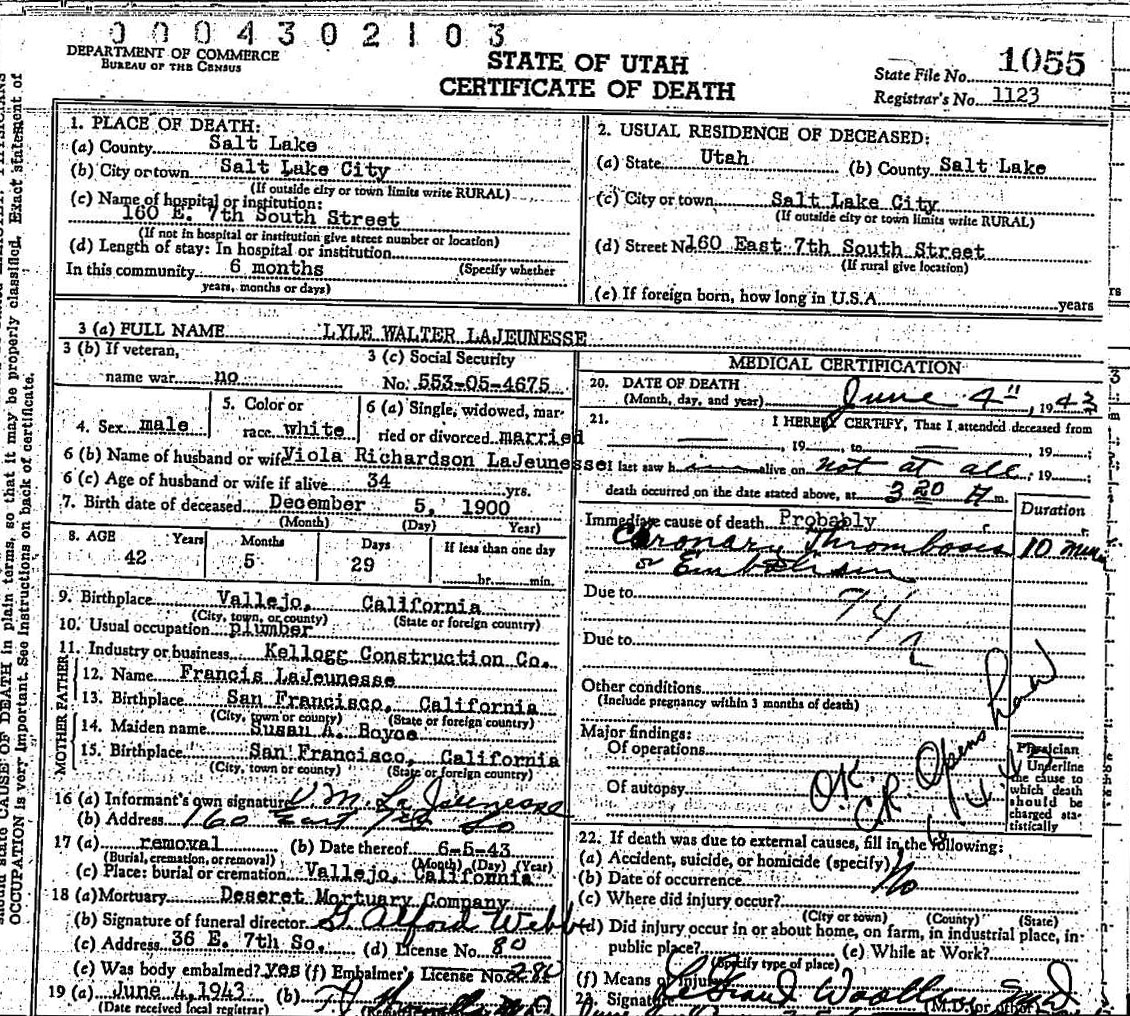 0 0 0 4 3 0 2 1 0 3
DEPARTMENT OF COMMERCE
BUREAU OF THE CENSUS
STATE OF UTAH
CERTIFICATE OF DEATH
State File No. 1055
Registrar's No. 1123
1. PLACE OF DEATH:
(a) County Salt Lake
(b) City or town Salt Lake City
(If outside city or town limits write RURAL)
(c) Name of hospital or institution:
160 E. 7th South Street
(If not in hospital or institution give street number or location)
(d) Length of stay: In hospital or institution
In this community 6 months (Specify whether
years, months or days)
2. USUAL RESIDENCE OF DECEASED:
(a) State Utah (b) County Salt Lake
(c) City or town Salt Lake City
(If outside city or town limits write RURAL)
(d) Street No 160 East 7th South Street
(If rural give location)
(e) If foreign born, how long in U.S.A. years
3 (a) FULL NAME LYLE WALTER LAJEUNESSE
3 (b) If veteran,
name war no
3 (c) Social Security
No. 553-05-4675
4. Sex male
5. Color or
race white
6 (a) Single, widowed, mar-
ried or divorced married
6 (b) Name of husband or wife Viola Richardson LaJeunesse
6 (c) Age of husband or wife if alive 34 yrs.
7. Birth date of deceased December 5, 1900
(Month) (Day) Year)
8. AGE Years Months Days If less than one day
42 5 29 hr. min.
9. Birthplace Vallejo, California
(City, town, or county) (State or foreign country)
10. Usual occupation plumber
11. Industry or business Kellogg Construction Co.
FATHER
12. Name Francis LaJeunesse
13. Birthplace San Francisco, California
(City, town or county) (State or foreign country)
MOTHER
14. Maiden name Susan A. Boyce
15. Birthplace San Francisco, California
(City, town or county) (State or foreign country)
16 (a) Informant's own signature V M. LaJeunesse
(b) Address 160 East 7th So
17 (a) removal (b) Date thereof 6-5-43
(Burial, cremation, or removal) (Month) (Day) (Year)
(c) Place: burial or cremation Vallejo, California
18 (a) Mortuary Deseret Mortuary Company
(b) Signature of funeral director Alford Webb
(c) Address 36 E. 7th So. (d) License No. 80
(e) Was body embalmed? yes (f) Embalmer's License No. 280
19 (a) June 4, 1943 (b)
(Date received local registrar)
MEDICAL CERTIFICATION
20. DATE OF DEATH
(Month, day, and year) June 4", 1943
21. I HEREBY CERTIFY, That I attended deceased from
, 19 to , 19 ;
I last saw h alive on not at all, 19 ;
death occurred on the date stated above, at 3 20 A m.
Duration
Immediate cause of death Probably
Coronary Thrombosis 10 mins
or Embolism
Due to 94
Due to
Other conditions
(Include pregnancy within 3 months of death)
Major findings:
Of operations
Of autopsy
O.K.
C.R.
Physician
Underline
the cause to
which death
should be
charged sta-
tistically
22. If death was due to external causes, fill in the following:
(a) Accident, suicide, or homicide (specify)
(b) Date of occurrence No
(c) Where did injury occur?
(City or town) (County) (State)
(d) Did injury occur in or about home, on farm, in industrial place, in-
public place? (e) While at Work?
(Specify type of place)
(f) Means of injury
Signature LeGrand Woolley M.D
(M.D. or other)
OCCUPATION is very important. See Instructions on back of certificate.
should state CAUSE OF DEATH in plain terms, so that it may be properly classified. Exact statement of